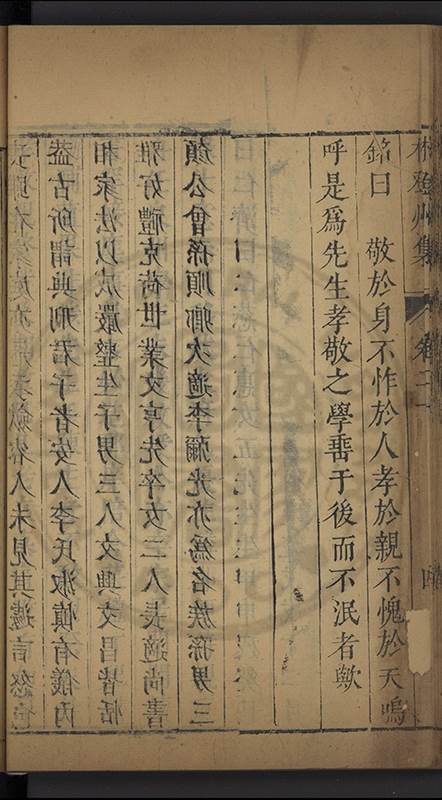 林登州集
銘曰　敬於身不怍於人孝於親不愧於天嗚
呼是為先生孝敬之學垂于後而不泯者歟
人未見其遽言怒色
益古所謂典刑君子者安人李氏淑慎有儀內
相家法以成嚴整生子男三人文興文昌皆恬
雅好禮克荷世業文亨先卒女二人長適尚書
顏公曾孫順卿次適李彌光亦為名族孫男三